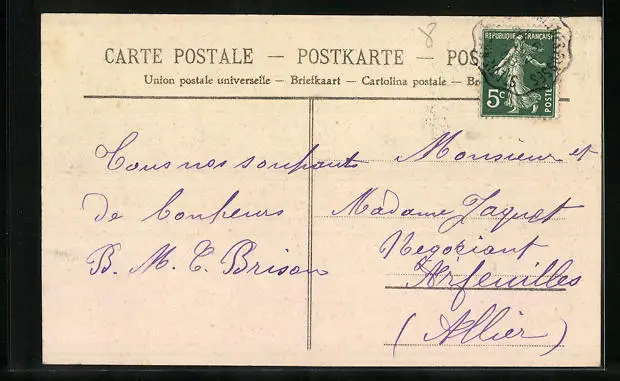 8
CARTE POSTALE — POSTKARTE — POS
Union postale universelle — Briefkaart — Cartolina postale — Br
REPUBLIQUE FRANÇAISE
5c
POSTES
Tous nos souhaits
de bonheurs
B. M. T. Brison
Monsieur et
Madame Jaquet
Negociant
Arfeuilles
(Allier)